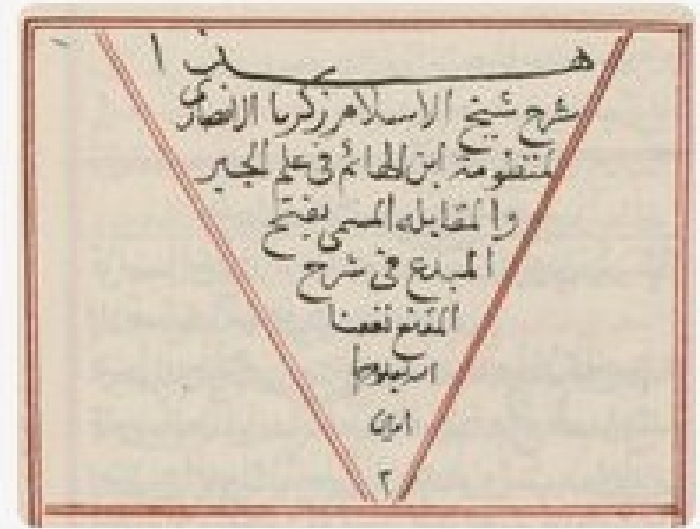 هذا
شرح شيخ الاسلام زكريا الانصاري
لمنظومة ابن الهائم في علم الجبر
والمقابله المسمى بفتح
المبدع في شرح
المقنع نفعنا
الله بعلومهما
امين
م